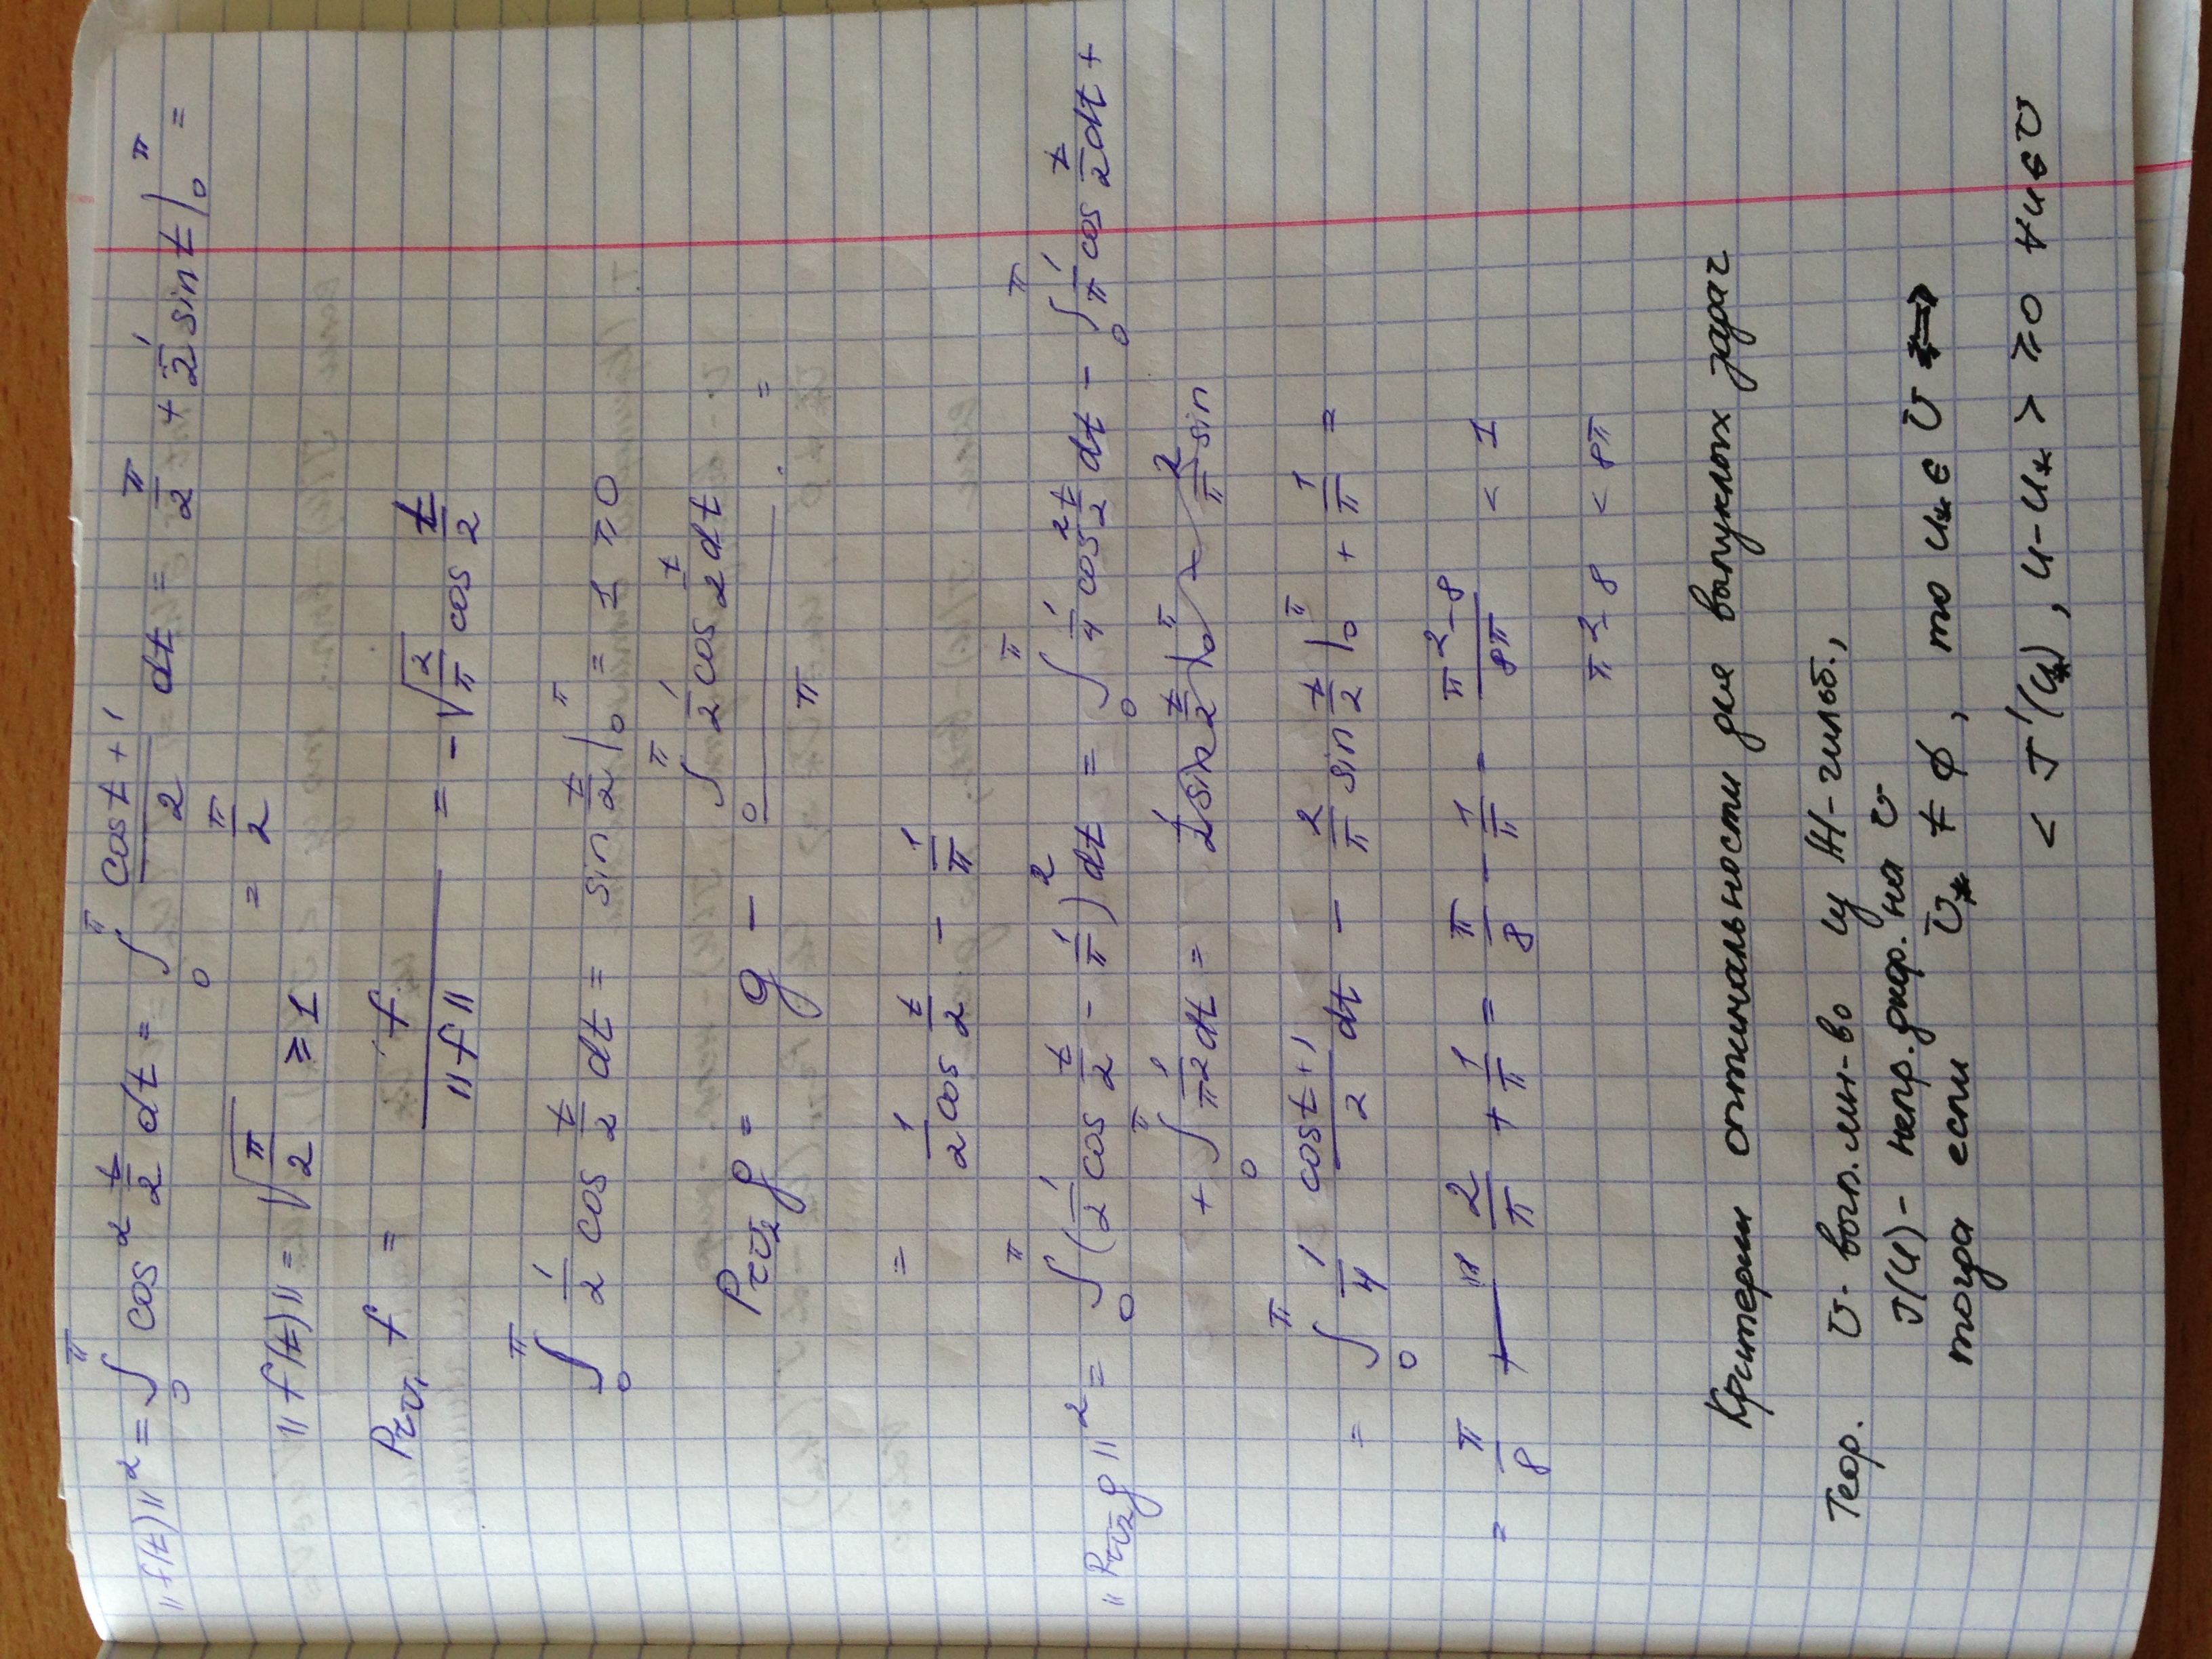 ‖f(t)‖² = ∫₀^π cos² t/2 dt = ∫₀^π (cos t + 1)/2 dt = π/2 + 1/2 sin t |₀^π =
= π/2
‖f(t)‖ = √(π/2) ≥ 1
Pr_{U₁} f = f/‖f‖ = -√(2/π) cos t/2
∫₀^π 1/2 cos t/2 dt = sin t/2 |₀^π = 1 ≥ 0
Pr_{U₂} g = g - (∫₀^π 1/2 cos t/2 dt)/π =
= 1/2 cos t/2 - 1/π
‖Pr_{U₂} g‖² = ∫₀^π (1/2 cos t/2 - 1/π)² dt = ∫₀^π 1/4 cos² t/2 dt - ∫₀^π 1/π cos t/2 dt +
+ ∫₀^π 1/π² dt =
= ∫₀^π 1/4 (cos t + 1)/2 dt - 2/π sin t/2 |₀^π + 1/π =
= π/8 - 2/π + 1/π = π/8 - 1/π = (π² - 8)/8π < 1
π² - 8 < 8π
Критерии оптимальности для выпуклых задач
Теор. U - вып. мн-во из H - гильб.,
J(u) - непр. диф. на U
тогда если U* ≠ ∅, то u* ∈ U ⟺
< J'(u*), u - u* > ≥ 0 ∀u∈U